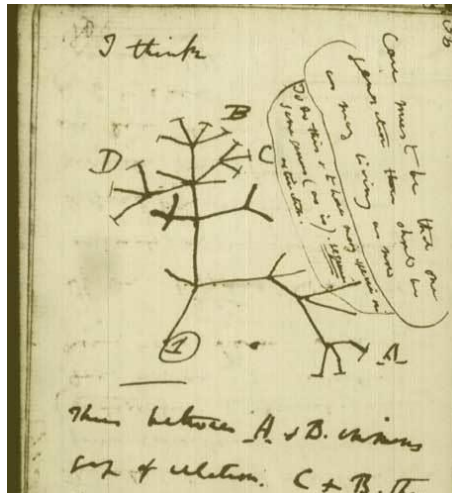 I think
Case must be that one
generation then should be
as many living as now
To do this & to have many species in
same genus (as is). requires
extinction.
B
D
C
A
1
Thus between A & B. immens
gap of relation. C & B.